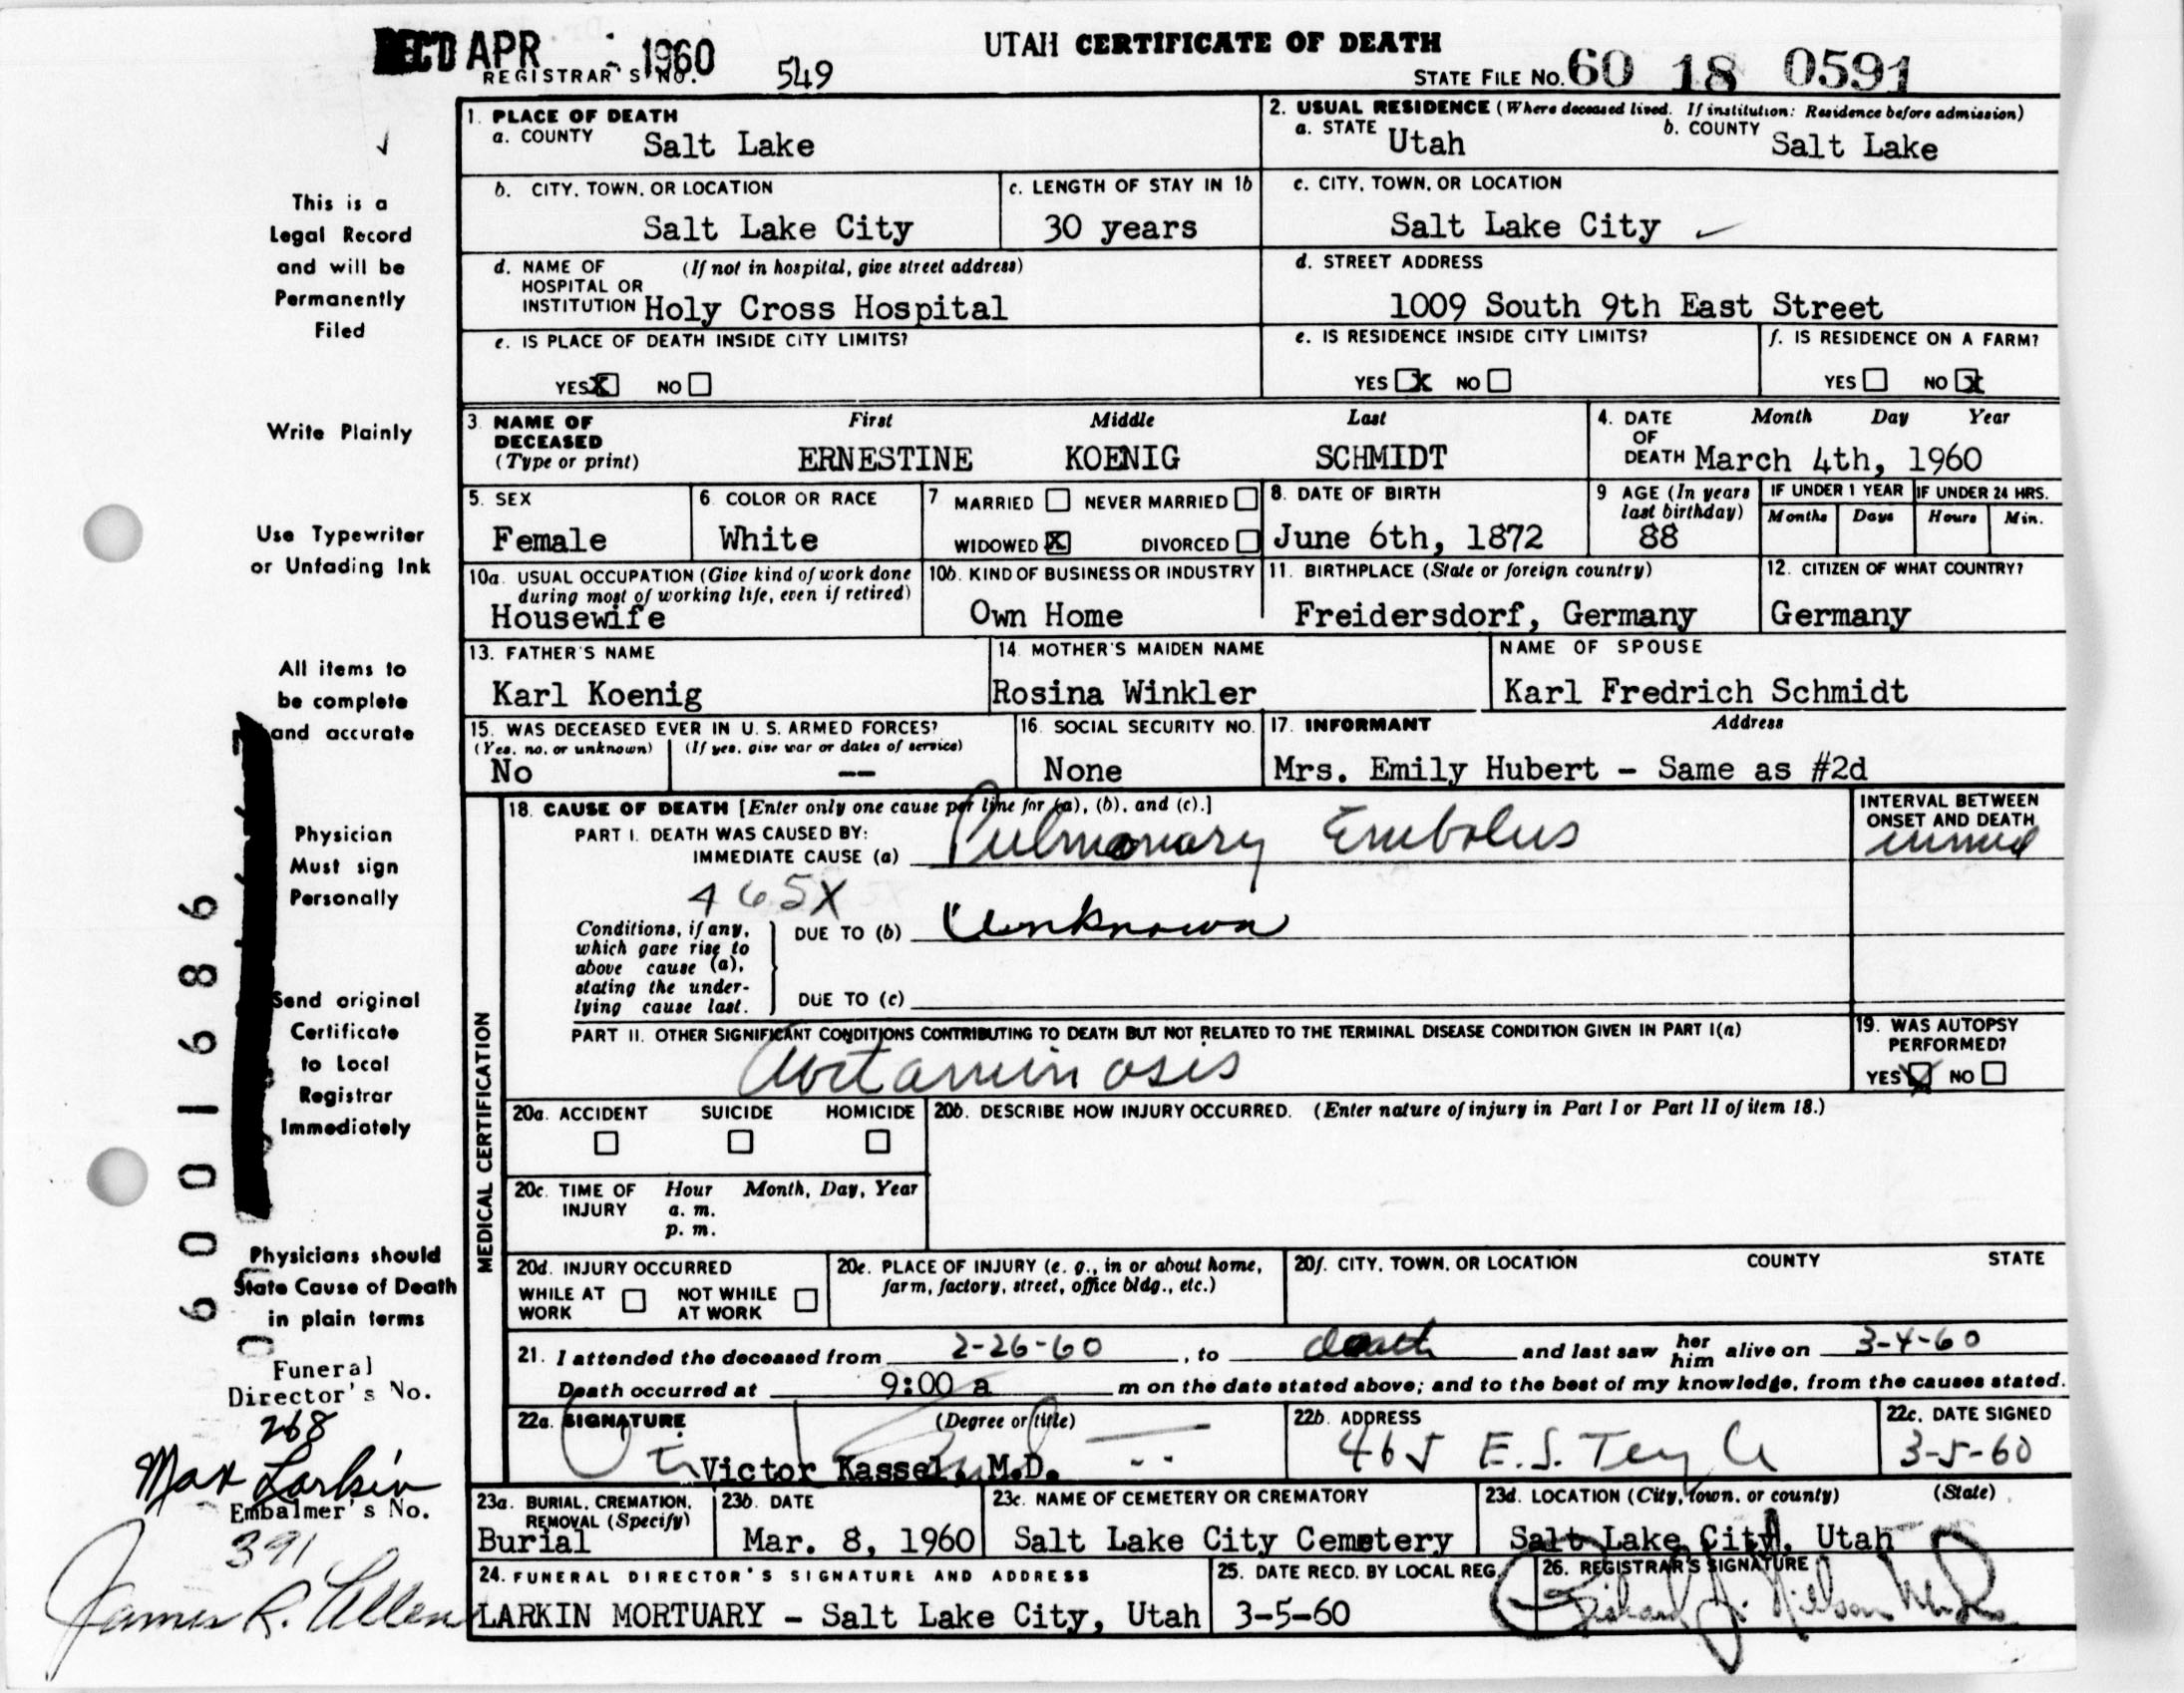 REC'D APR - 1960
UTAH CERTIFICATE OF DEATH
REGISTRAR'S NO. 549
STATE FILE NO. 60 18 0591
1. PLACE OF DEATH
a. COUNTY Salt Lake
2. USUAL RESIDENCE (Where deceased lived. If institution: Residence before admission)
a. STATE Utah b. COUNTY Salt Lake
b. CITY, TOWN, OR LOCATION Salt Lake City
c. LENGTH OF STAY IN 1b 30 years
c. CITY, TOWN, OR LOCATION Salt Lake City
d. NAME OF HOSPITAL OR INSTITUTION (If not in hospital, give street address) Holy Cross Hospital
d. STREET ADDRESS 1009 South 9th East Street
e. IS PLACE OF DEATH INSIDE CITY LIMITS? YES X NO
e. IS RESIDENCE INSIDE CITY LIMITS? YES X NO
f. IS RESIDENCE ON A FARM? YES NO X
3. NAME OF DECEASED (Type or print) First Middle Last
ERNESTINE KOENIG SCHMIDT
4. DATE OF DEATH Month Day Year March 4th, 1960
5. SEX Female
6. COLOR OR RACE White
7 MARRIED NEVER MARRIED WIDOWED X DIVORCED
8. DATE OF BIRTH June 6th, 1872
9 AGE (In years last birthday) 88
IF UNDER 1 YEAR Months Days
IF UNDER 24 HRS. Hours Min.
10a. USUAL OCCUPATION (Give kind of work done during most of working life, even if retired) Housewife
10b. KIND OF BUSINESS OR INDUSTRY Own Home
11. BIRTHPLACE (State or foreign country) Freidersdorf, Germany
12. CITIZEN OF WHAT COUNTRY? Germany
13. FATHER'S NAME Karl Koenig
14. MOTHER'S MAIDEN NAME Rosina Winkler
NAME OF SPOUSE Karl Fredrich Schmidt
15. WAS DECEASED EVER IN U. S. ARMED FORCES?
(Yes, no, or unknown) No (If yes, give war or dates of service) --
16. SOCIAL SECURITY NO. None
17. INFORMANT Address
Mrs. Emily Hubert - Same as #2d
MEDICAL CERTIFICATION
18. CAUSE OF DEATH [Enter only one cause per line for (a), (b), and (c).]
PART I. DEATH WAS CAUSED BY:
IMMEDIATE CAUSE (a) Pulmonary Embolus
INTERVAL BETWEEN ONSET AND DEATH immed
465X
Conditions, if any, which gave rise to above cause (a), stating the underlying cause last.
DUE TO (b) Unknown
DUE TO (c)
PART II. OTHER SIGNIFICANT CONDITIONS CONTRIBUTING TO DEATH BUT NOT RELATED TO THE TERMINAL DISEASE CONDITION GIVEN IN PART I(a)
Avitaminosis
19. WAS AUTOPSY PERFORMED? YES X NO
20a. ACCIDENT SUICIDE HOMICIDE
20b. DESCRIBE HOW INJURY OCCURRED. (Enter nature of injury in Part I or Part II of item 18.)
20c. TIME OF INJURY Hour Month, Day, Year
a. m.
p. m.
20d. INJURY OCCURRED
WHILE AT WORK NOT WHILE AT WORK
20e. PLACE OF INJURY (e. g., in or about home, farm, factory, street, office bldg., etc.)
20f. CITY, TOWN, OR LOCATION COUNTY STATE
21. I attended the deceased from 2-26-60, to death and last saw her him alive on 3-4-60
Death occurred at 9:00 a m on the date stated above; and to the best of my knowledge, from the causes stated.
22a. SIGNATURE (Degree or title)
Victor Kassel, M.D.
22b. ADDRESS 465 E.S. Temple
22c. DATE SIGNED 3-5-60
23a. BURIAL, CREMATION, REMOVAL (Specify) Burial
23b. DATE Mar. 8, 1960
23c. NAME OF CEMETERY OR CREMATORY Salt Lake City Cemetery
23d. LOCATION (City, town, or county) (State) Salt Lake City, Utah
24. FUNERAL DIRECTOR'S SIGNATURE AND ADDRESS
LARKIN MORTUARY - Salt Lake City, Utah
25. DATE RECD. BY LOCAL REG. 3-5-60
26. REGISTRAR'S SIGNATURE
Richard J. Nilson
This is a
Legal Record
and will be
Permanently
Filed
Write Plainly
Use Typewriter
or Unfading Ink
All items to
be complete
and accurate
Physician
Must sign
Personally
Send original
Certificate
to Local
Registrar
Immediately
Physicians should
State Cause of Death
in plain terms
Funeral
Director's No.
268
Max Larkin
Embalmer's No.
391
James R. Allen
6001686